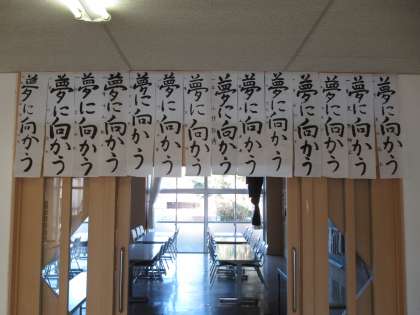 夢に向かう
夢に向かう
夢に向かう
夢に向かう
夢に向かう
夢に向かう
夢に向かう
夢に向かう
夢に向かう
夢に向かう
夢に向かう
夢に向かう
夢に向かう
夢に向かう